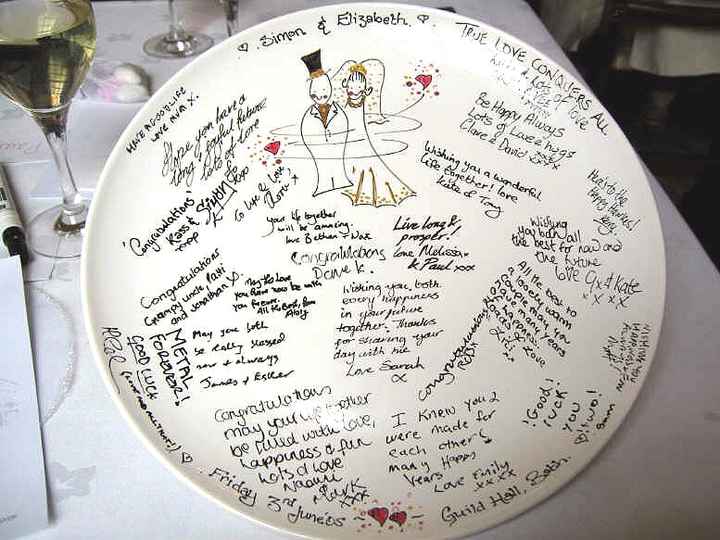 Simon & Elizabeth.
TRUE LOVE CONQUERS ALL
Lots of love
HAVE A GOOD LIFE
LOVE NIA X.
Hope you have a
long & joyful future
lots of love
Be Happy Always
Lots of Love & hugs
Clare & David xxx
Wishing you a wonderful
life together! love
Kate & Tony
Here's to the
Happy Memories!
Congratulations!
Kass &
To Life & Love,
your life together
will be amazing.
love Bethan + Nax
Live long &
prosper!
love Melissa
& Paul xxx
Congratulations
Dave K.
Wishing
you both all
the best for now and
the future
love Gx & Kate
x x x x
Congratulations
Grampy uncle Patti
and Jonathan X.
May the love
you have now be with
you forever.
All the Best, from
Wishing you both
every happiness
in your future
together. Thanks
for sharing your
day with me
Love Sarah
x
All the best to
a lovely warm
couple, many
many years
of happiness
Love
METAL
FOREVER!
GOOD LUCK
May you both
be really blessed
now & always
James & Esther
congratulations
ROBIN
Congratulations
may your life together
be filled with love,
happiness & fun
lots of love
Naomi
Mark
xxx
I knew you 2
were made for
each other!
many Happy
Years
Love Emily
xx xx
Good!
luck!
you
two!
Friday 3rd June 05
Guild Hall, Bath.